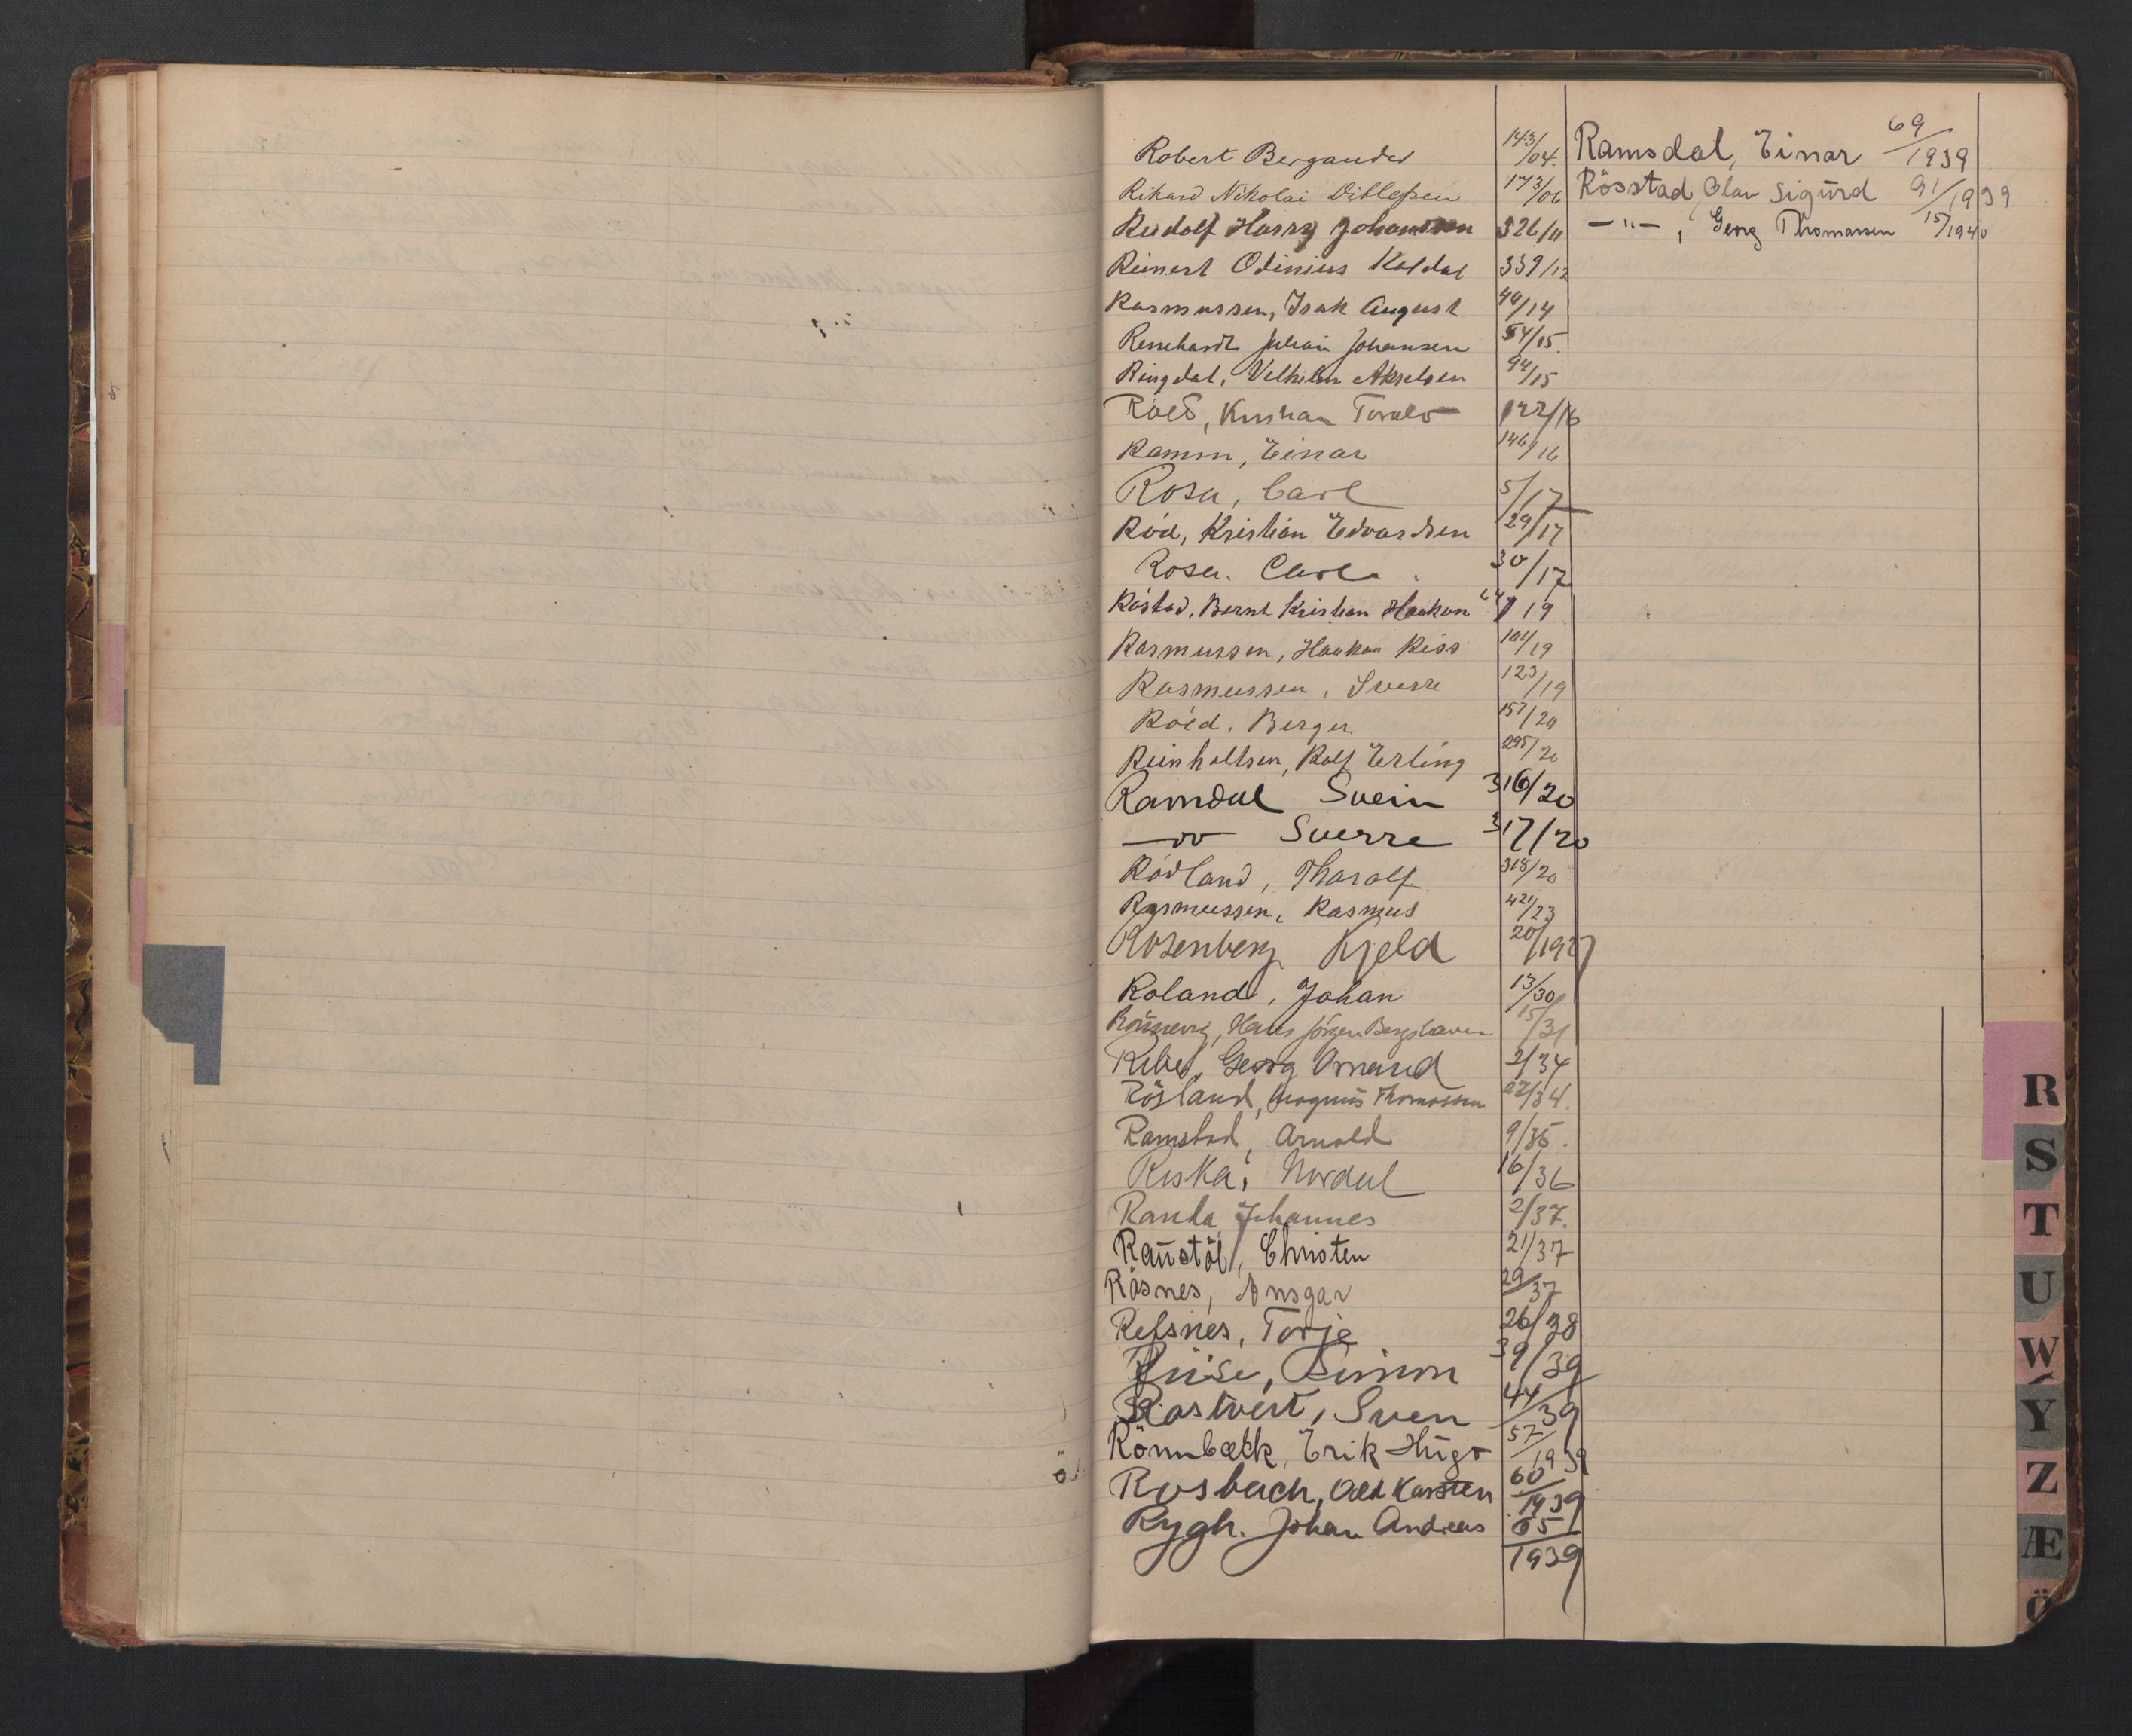 Robert Bergander 143/04.
Rikard Nikolai Ditlefsen 173/06
Rudolf Harry Johansen 326/11
Reinert Odinius Koldal 339/12
Rasmussen, Isak August 49/14
Reinhardt Julian Johansen 54/15.
Ringdal, Vilhelm Akselsen 94/15
Röed, Kristian 122/16
Ramm, Einar 146/16
Rosa, Carl 5/17
Röd, Kristian Edvardsen 29/17
Rosa. Carl 30/17
Röstad, Bernt Kristian Haakon 19
Rasmussen, Haakon Riss 101/19
Rasmussen, Sverre 123/19
Röed, Berger 157/20
Reinholtsen, Rolf Erling 295/20
Ramdal Svein 316/20
—"— Sverre 317/20
Rödland, Tharalf 318/20
Rasmussen, Rasmus 421/23
Rosenberg Kjeld 20/1927
Roland, Johan 13/30
Rönnevig, Hans Jörgen 15/31
Georg Amand 2/34
Rösland, Magnus Thomassen 22/34.
Ramstad, Arnold 9/35.
Riska, Nordal 16/36
Randa, Johannes 2/37.
Raustöl, Christen 21/37
Räsnes, Ansgar 29/37
Refsnes, Torje 26/38
Riise, Simon 39/39
Rastvert, Sven 44/39
Rönnbæck, Erik Hugo 57/1939
Rosbach, Odd Karsten 60/1939
Rygh. Johan Andreas 65/1939
Ramsdal, Einar 69/1939
Rösstad, Olav Sigurd 91/1939
—"—, Georg Thomassen 15/1940
R
S
T
U
W
Y
Z
Æ
Ö